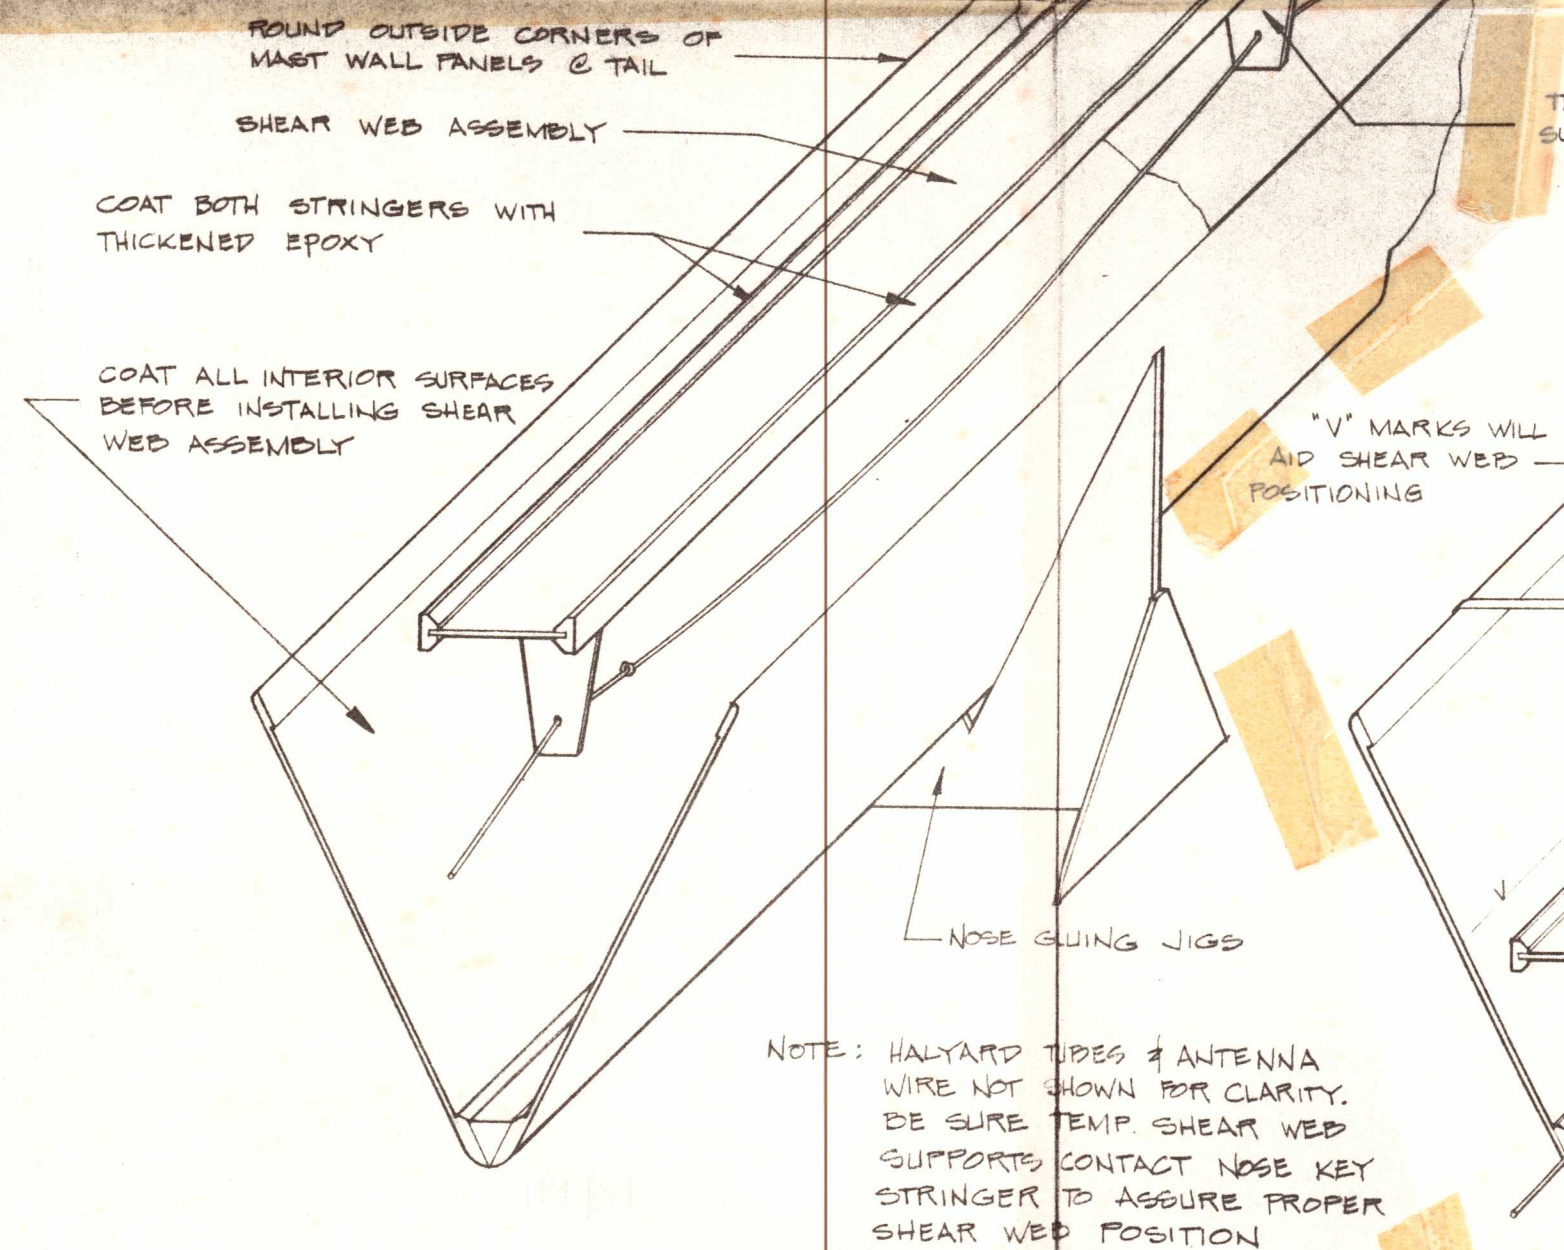 ROUND OUTSIDE CORNERS OF
MAST WALL PANELS @ TAIL
SHEAR WEB ASSEMBLY
COAT BOTH STRINGERS WITH
THICKENED EPOXY
COAT ALL INTERIOR SURFACES
BEFORE INSTALLING SHEAR
WEB ASSEMBLY
"V" MARKS WILL
AID SHEAR WEB
POSITIONING
V
NOSE GLUING JIGS
NOTE: HALYARD TUBES & ANTENNA
WIRE NOT SHOWN FOR CLARITY.
BE SURE TEMP. SHEAR WEB
SUPPORTS CONTACT NOSE KEY
STRINGER TO ASSURE PROPER
SHEAR WEB POSITION